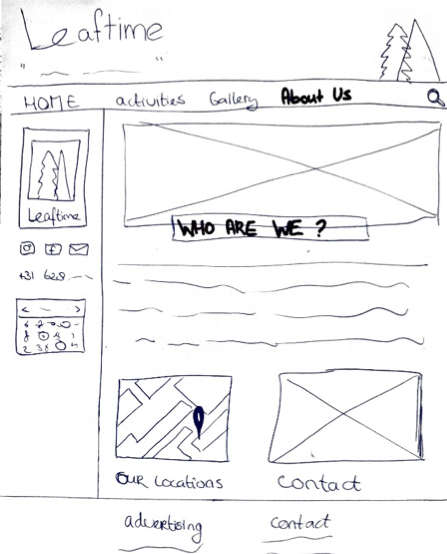 Leaftime
HOME activities Gallery About Us
Leaftime
WHO ARE WE ?
+31 628
OUR Locations Contact
advertising contact